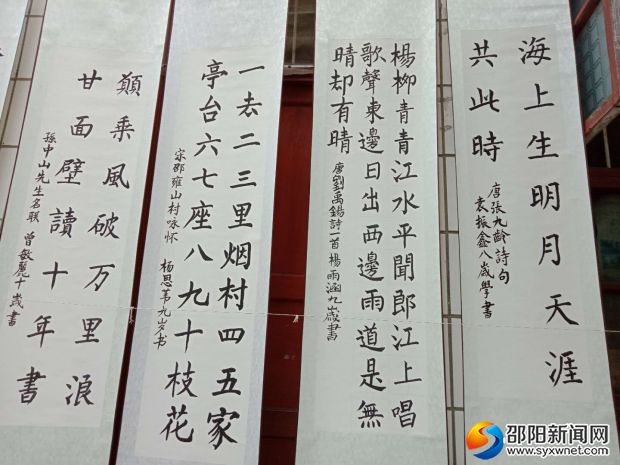 海上生明月天涯
共此時
唐張九齡詩句
袁振鑫八歲學書
楊柳青青江水平聞郎江上唱
歌聲東邊日出西邊雨道是無
晴却有晴
唐劉禹錫詩一首楊雨涵九歲書
一去二三里烟村四五家
亭台六七座八九十枝花
宋邵雍山村咏怀 杨思九岁书
願乘風破万里浪
甘面壁讀十年書
孫中山先生名联 曾敏麗十歲書
邵阳新闻网
www.syxwnet.com